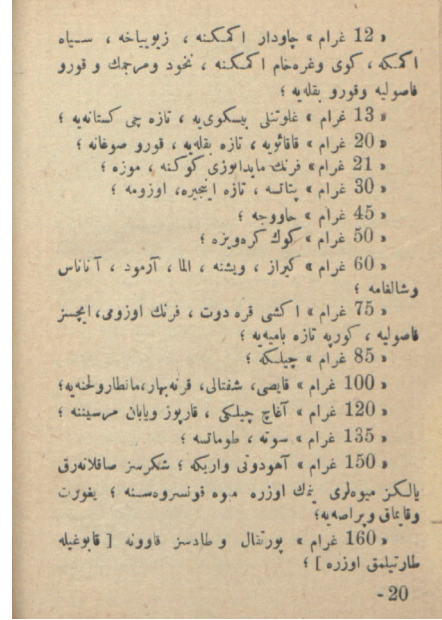 « 12 غرام » چاودار اكمكنه ، زیوبیاخه ، سیاه
اكمكه ، كوی وغره‌خام اكمكنه ، نخود ومرجمك و قورو
فاصولیه وقورو بقله‌یه ؛
« 13 غرام » غلوتنلی بیسكوی‌یه ، تازه چی كستانه‌یه ؛
« 20 غرام » قاقائویه ، تازه بقله‌یه ، قورو صوغانه ؛
« 21 غرام » فرنك مایدانوزی كوكنه ، موزه ؛
« 30 غرام » پتاتسه ، تازه اینجیره، اوزومه ؛
« 45 غرام » حاووجه ؛
« 50 غرام » كوك كره‌ویزه ؛
« 60 غرام » كیراز ، ویشنه ، الما ، آرمود ، آناناس
وشالغامه ؛
« 75 غرام » اكشی قره دوت ، فرنك اوزومی، ایچسز
فاصولیه ، كورپه تازه بامیه‌یه ؛
« 85 غرام » چیلكه ؛
« 100 غرام » قایصی، شفتالی، قرنه‌بهار،مانطارولحنه‌یه؛
« 120 غرام » آغاچ چیلكی ، قارپوز ویابان مرسیننه ؛
« 135 غرام » سوته ، طوماتسه ؛
« 150 غرام » آهودونی واریكه ؛ شكرسز صاقلانه‌رق
یالكز میوه‌لری ینمك اوزره میوه قونسروه‌سنه ؛ یغورت
وقایماق وپراصه‌یه؛
« 160 غرام » پورتقال و طادسز قاوونه [ قابوغیله
طارتیلمق اوزره ] ؛
20 -